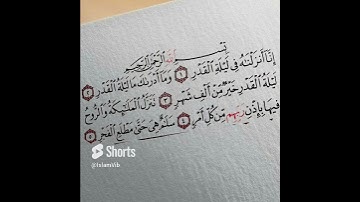 بِسْمِ اللَّهِ الرَّحْمَٰنِ الرَّحِيمِ
إِنَّا أَنزَلْنَٰهُ فِي لَيْلَةِ الْقَدْرِ ١ وَمَا أَدْرَىٰكَ مَا لَيْلَةُ الْقَدْرِ ٢
لَيْلَةُ الْقَدْرِ خَيْرٌ مِّنْ أَلْفِ شَهْرٍ ٣ تَنَزَّلُ الْمَلَٰٓئِكَةُ وَالرُّوحُ
فِيهَا بِإِذْنِ رَبِّهِم مِّن كُلِّ أَمْرٍ ٤ سَلَٰمٌ هِيَ حَتَّىٰ مَطْلَعِ الْفَجْرِ ٥
Shorts
@IslamVib